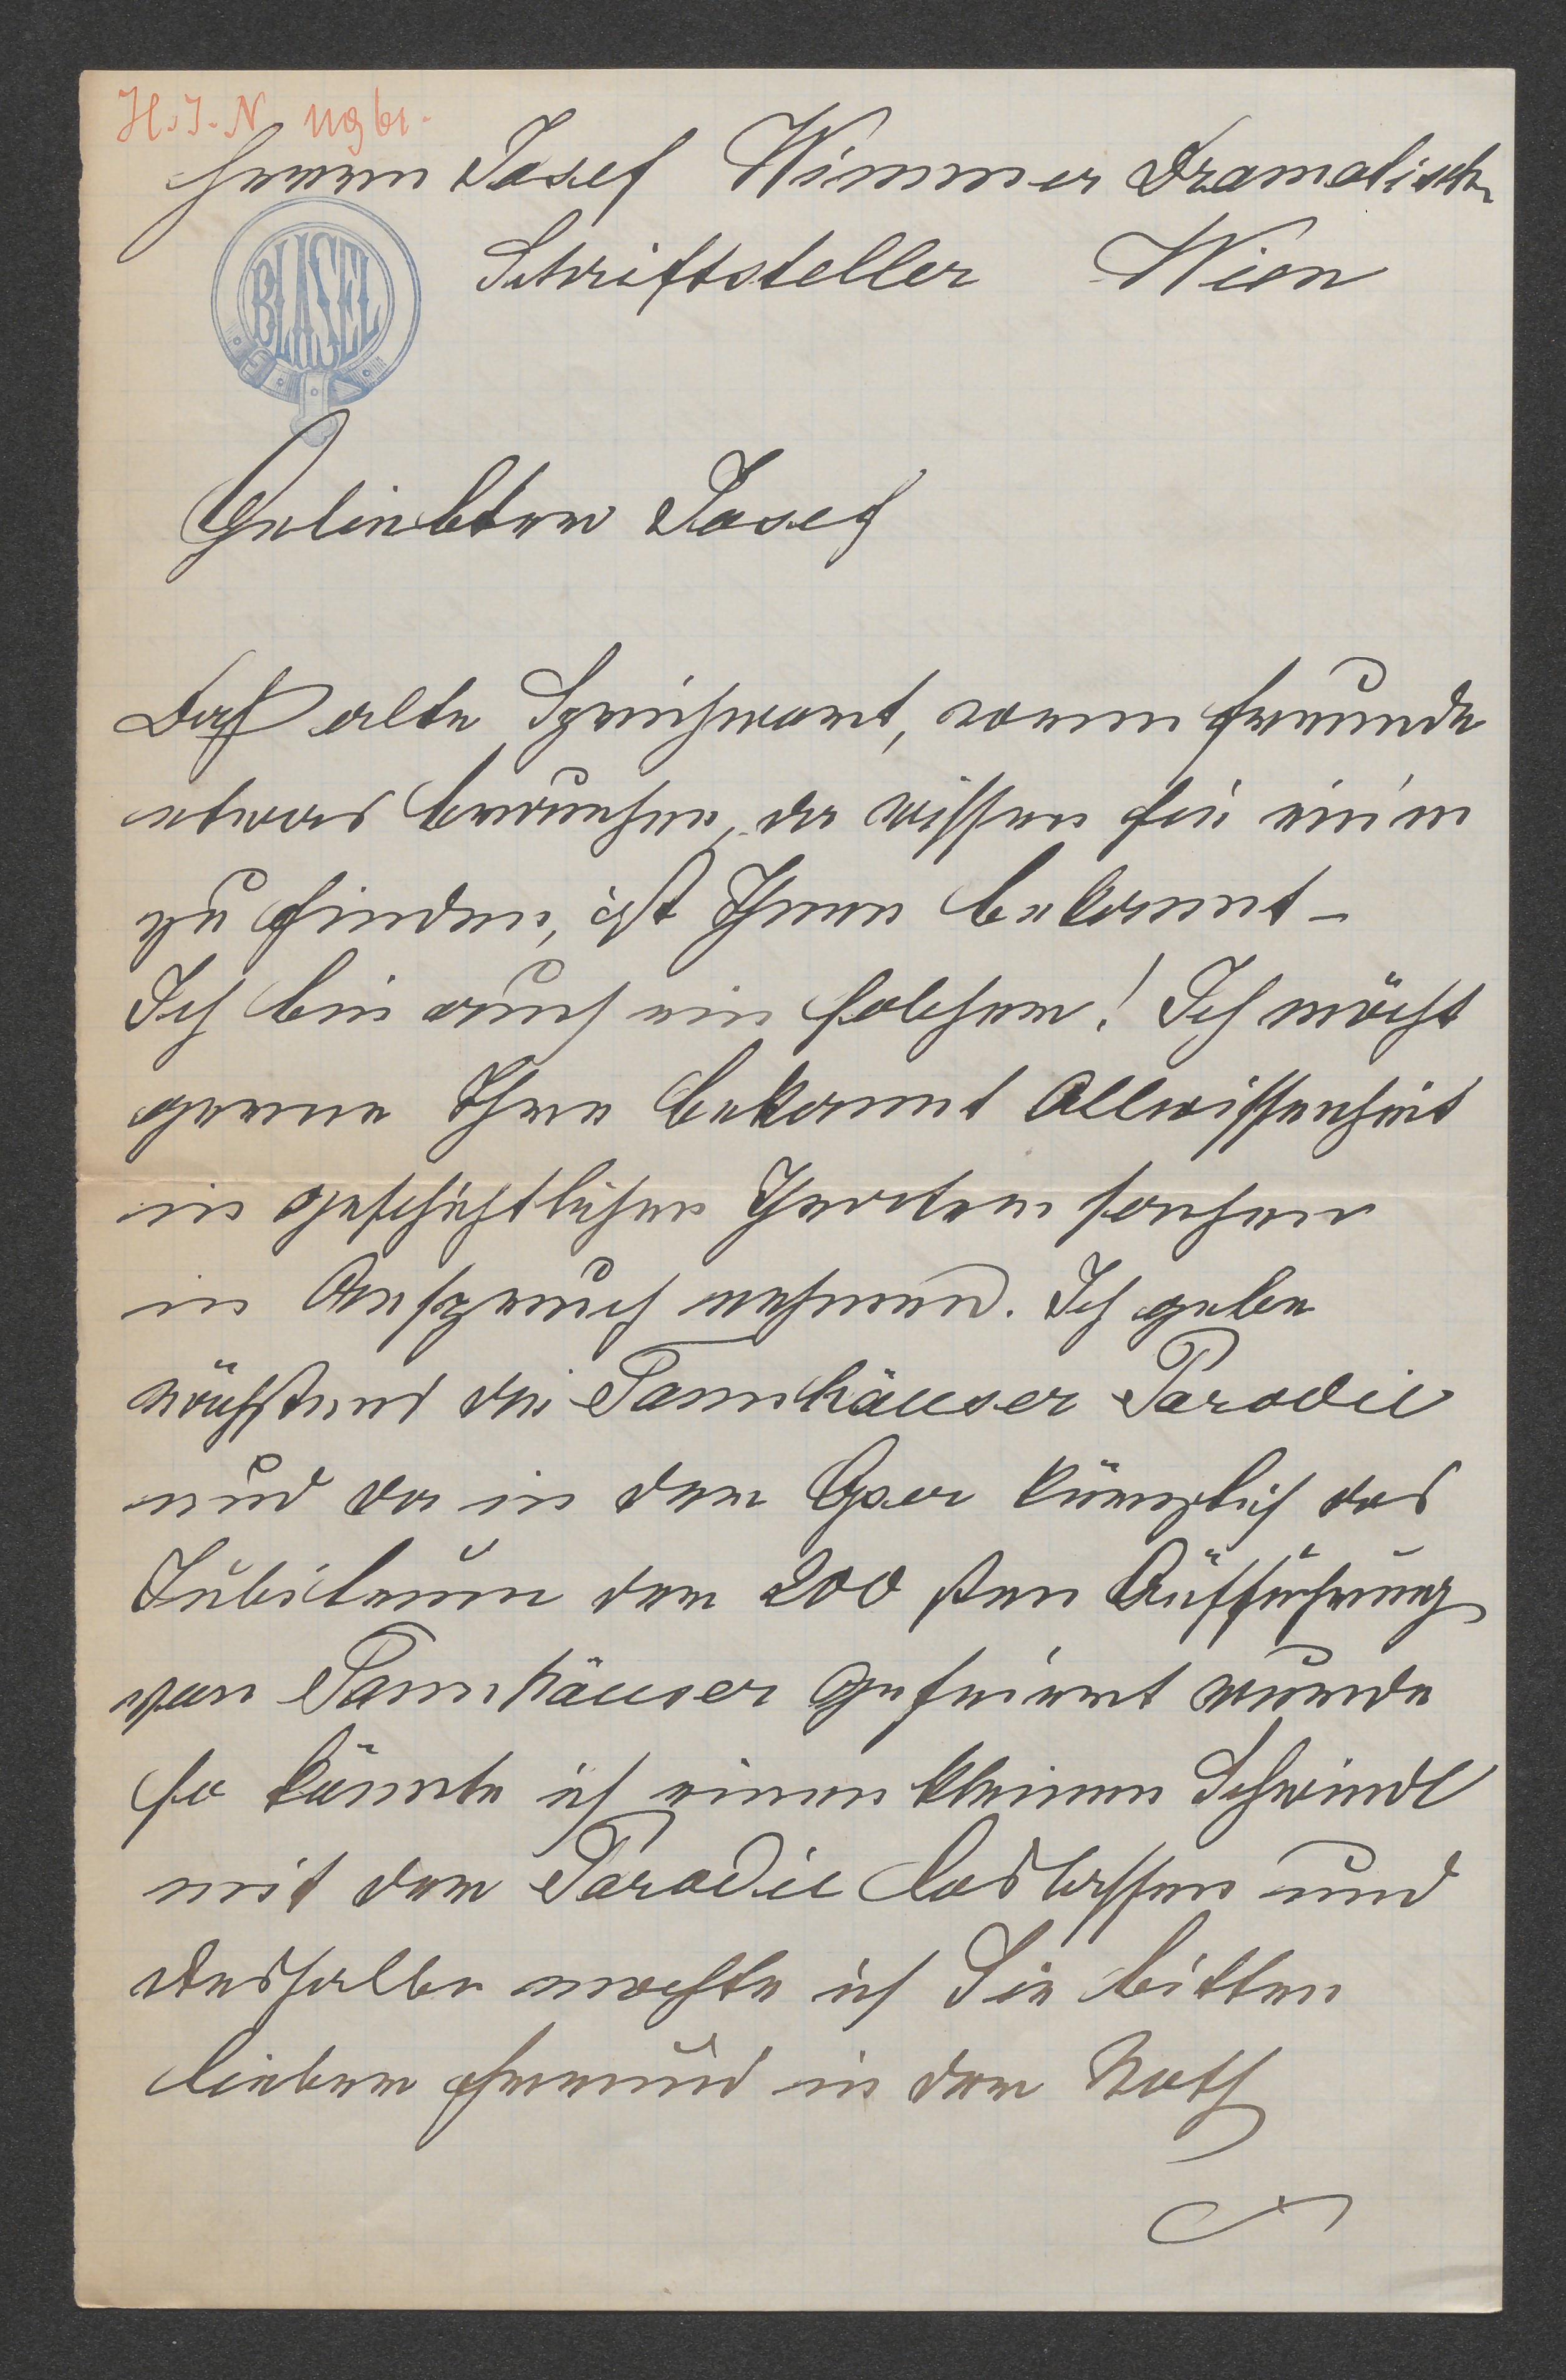 H.I.N. 11961.
Herrn Josef Wimmer Dramatisch.
Schriftsteller Wien
BLASEL
Geliebter Josef
Das alte Sprichwort, wenn Freunde
etwas brauchen, da wissen sie einen
zu finden, ist Ihnen bekannt –
Ich bin auch ein solcher! Ich möcht
gerne Ihre bekannt Allwissenheit
in geschichtlichen Theatersachen
in Anspruch nehmen. Ich gebe
nächstens die Tannhäuser Parodie
und da in der Oper kürzlich das
Jubileum der 200 sten Aufführung
von Tannhäuser gefeiert wurde
so könnte ich einen kleinen Schwindl
mit der Parodie loslassen und
deshalber mochte ich Sie bitten
lieber Freund in der Noth